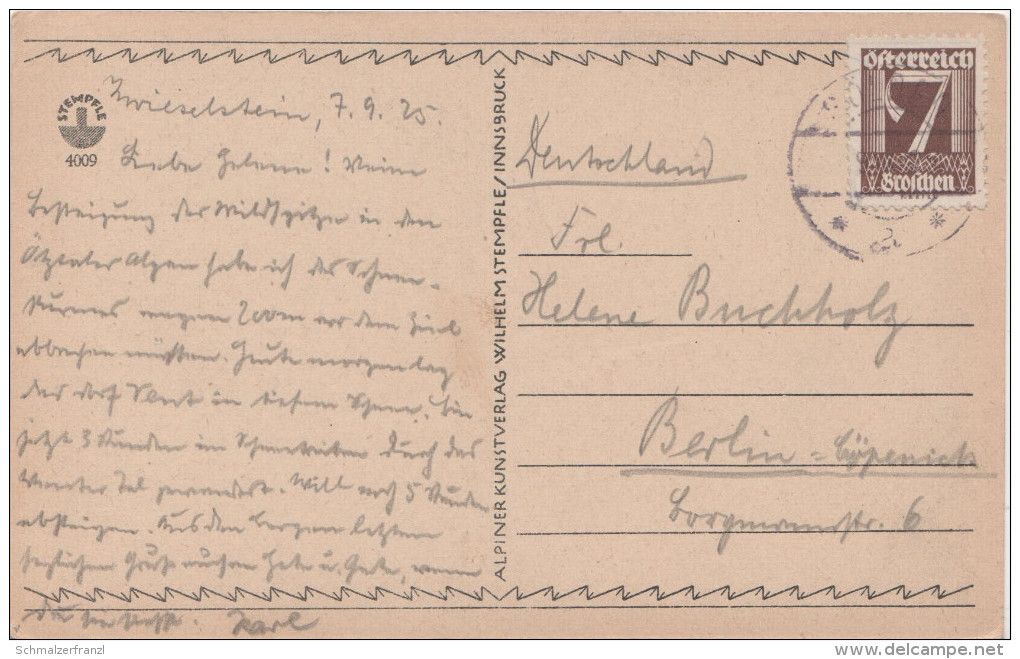 STEMPFLE
4009
Zwieselstein, 7.9.25.
Liebe Helene! Meine
Besteigung der Wildspitze in den
Ötztaler Alpen habe ich des Schnee-
sturmes wegen 200m vor dem Ziel
abbrechen müssen. Heute morgen lag
das Dorf Vent in tiefem Schnee. Bin
jetzt 3 Stunden im Schneetreiben durch das
Venter Tal gewandert. Will noch 5 Stunden
absteigen. Aus den Bergen letzten
herzlichen Gruß
Karl
ALPINER KUNSTVERLAG WILHELM STEMPFLE / INNSBRUCK
Österreich
7
Groschen
Deutschland
Frl.
Helene Buchholz
Berlin = Cöpenick
Borgmannstr. 6
Schmalzerfranzl
delcampe.net